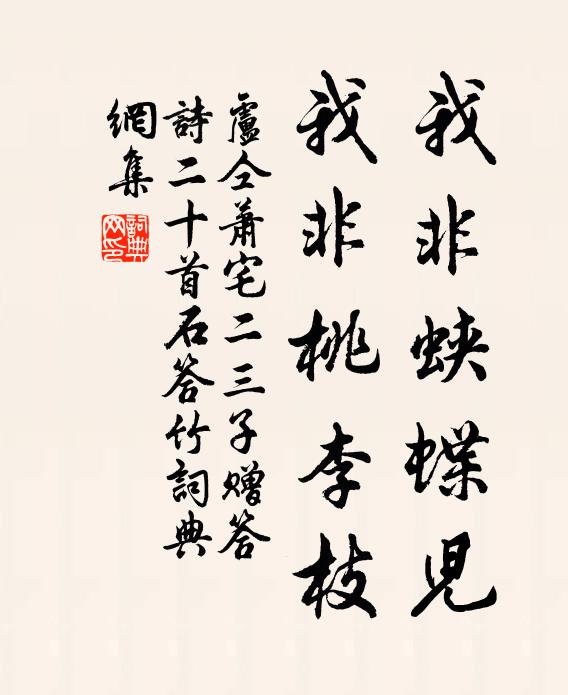 我非蛺蝶兒
我非桃李枝
盧仝蕭宅二三子贈答
詩二十首石答竹詞典
網集
詞典
网印